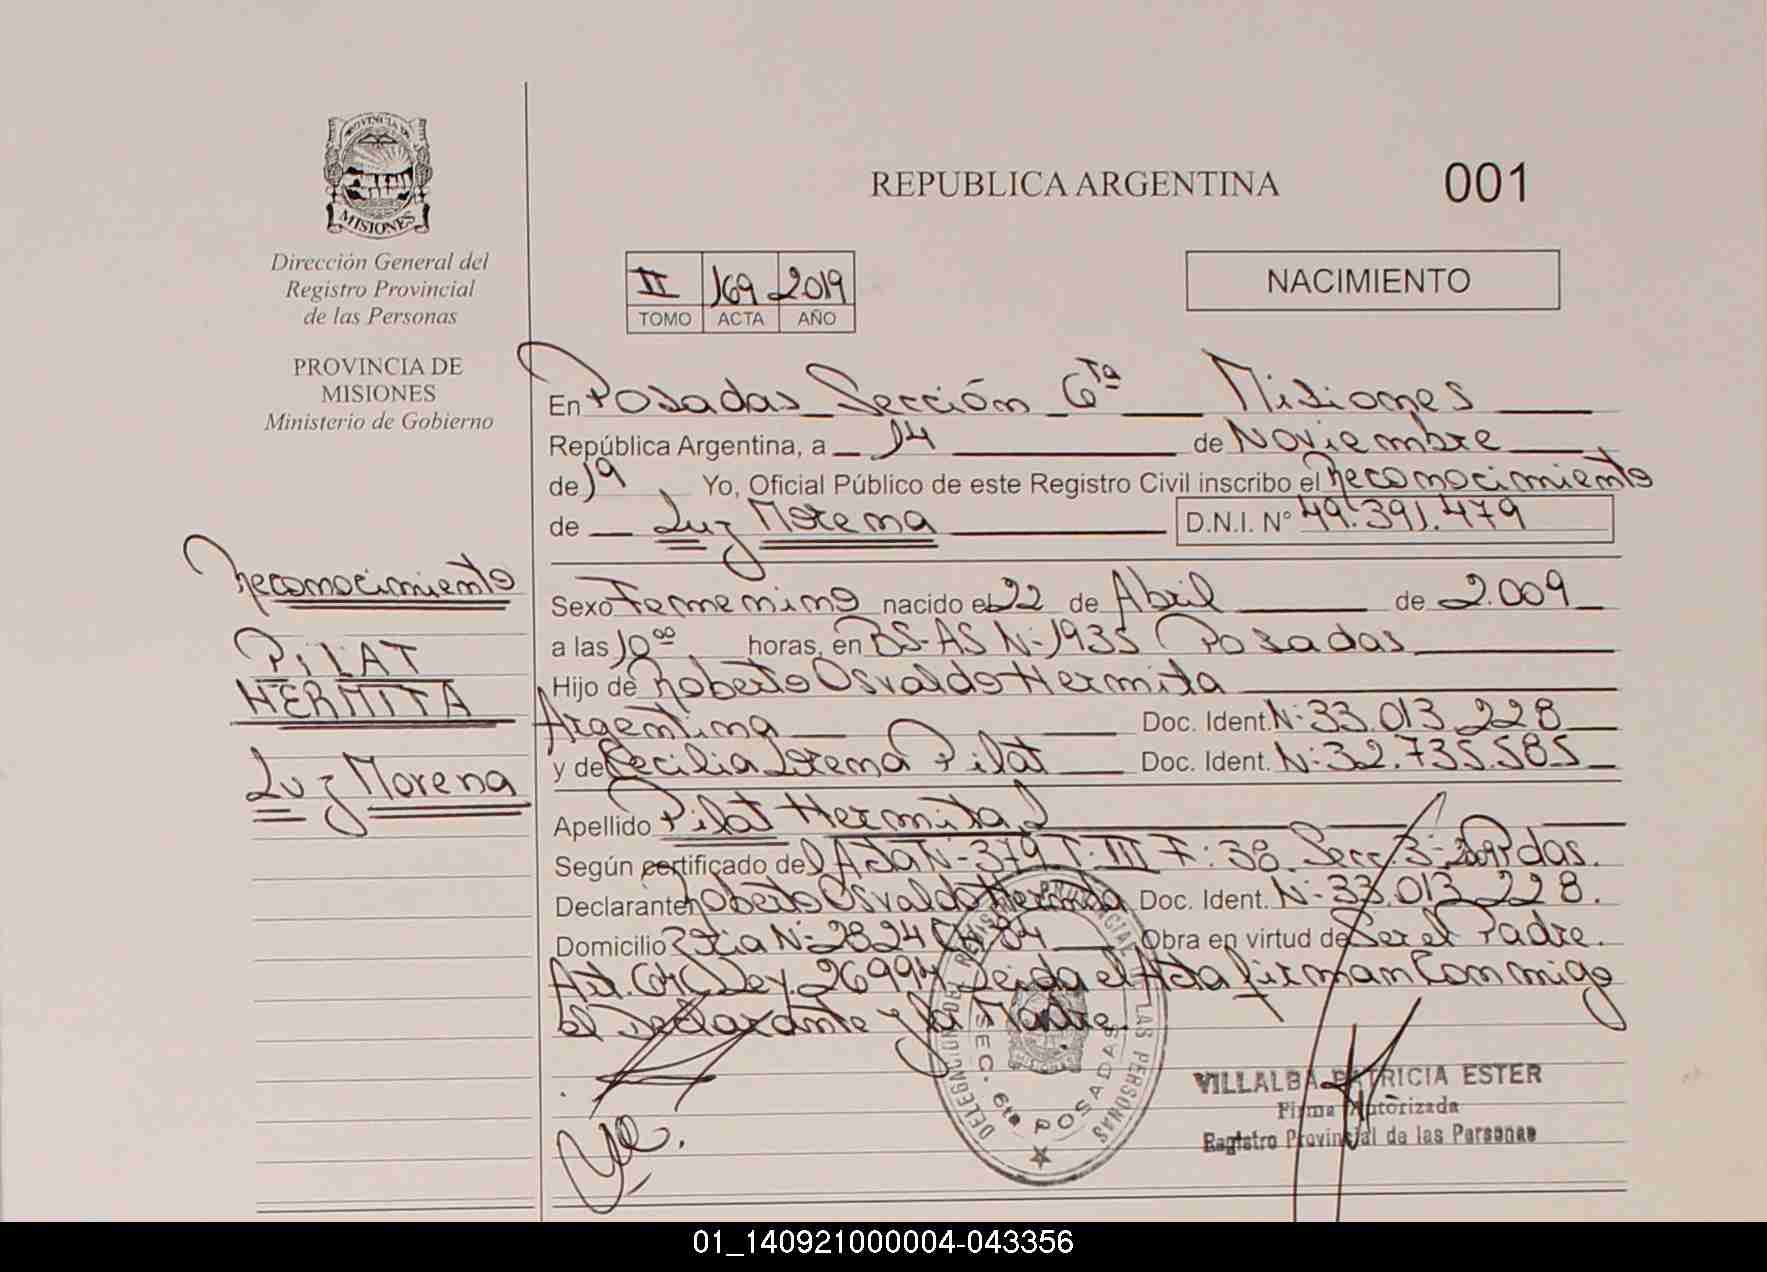 PROVINCIA DE
MISIONES
Dirección General del
Registro Provincial
de las Personas
PROVINCIA DE
MISIONES
Ministerio de Gobierno
REPUBLICA ARGENTINA
001
NACIMIENTO
II 169 2019
TOMO ACTA AÑO
En Posadas Sección 6ta Misiones
República Argentina, a 14 de Noviembre
de 19 Yo, Oficial Público de este Registro Civil inscribo el Reconocimiento
de Luz Morena D.N.I. N° 49.391.479
Reconocimiento
PILAT
HERMITA
Luz Morena
Sexo Femenino nacido el 22 de Abril de 2.009
a las 10 00 horas, en BS-AS N-1935 Posadas
Hijo de Roberto Osvaldo Hermita
Argentina Doc. Ident. N-33.013.228
y de Cecilia Lorena Pilat Doc. Ident. N-32.735.585
Apellido Pilat Hermita
Según certificado del Acta N-379 T:III F:38 Secc 3- Pdas.
Declarante Roberto Osvaldo Hermita Doc. Ident. N-33.013.228.
Domicilio N-2824 84 Obra en virtud de Ser el Padre.
Art. Ley. 26994 Leida el Acta firman Conmigo
el Declarante y la Madre.
DELEGACION DEL REGISTRO PROVINCIAL DE LAS PERSONAS
SEC. 6ta POSADAS
VILLALBA PATRICIA ESTER
Firma Autorizada
Registro Provincial de las Personas
01_140921000004-043356